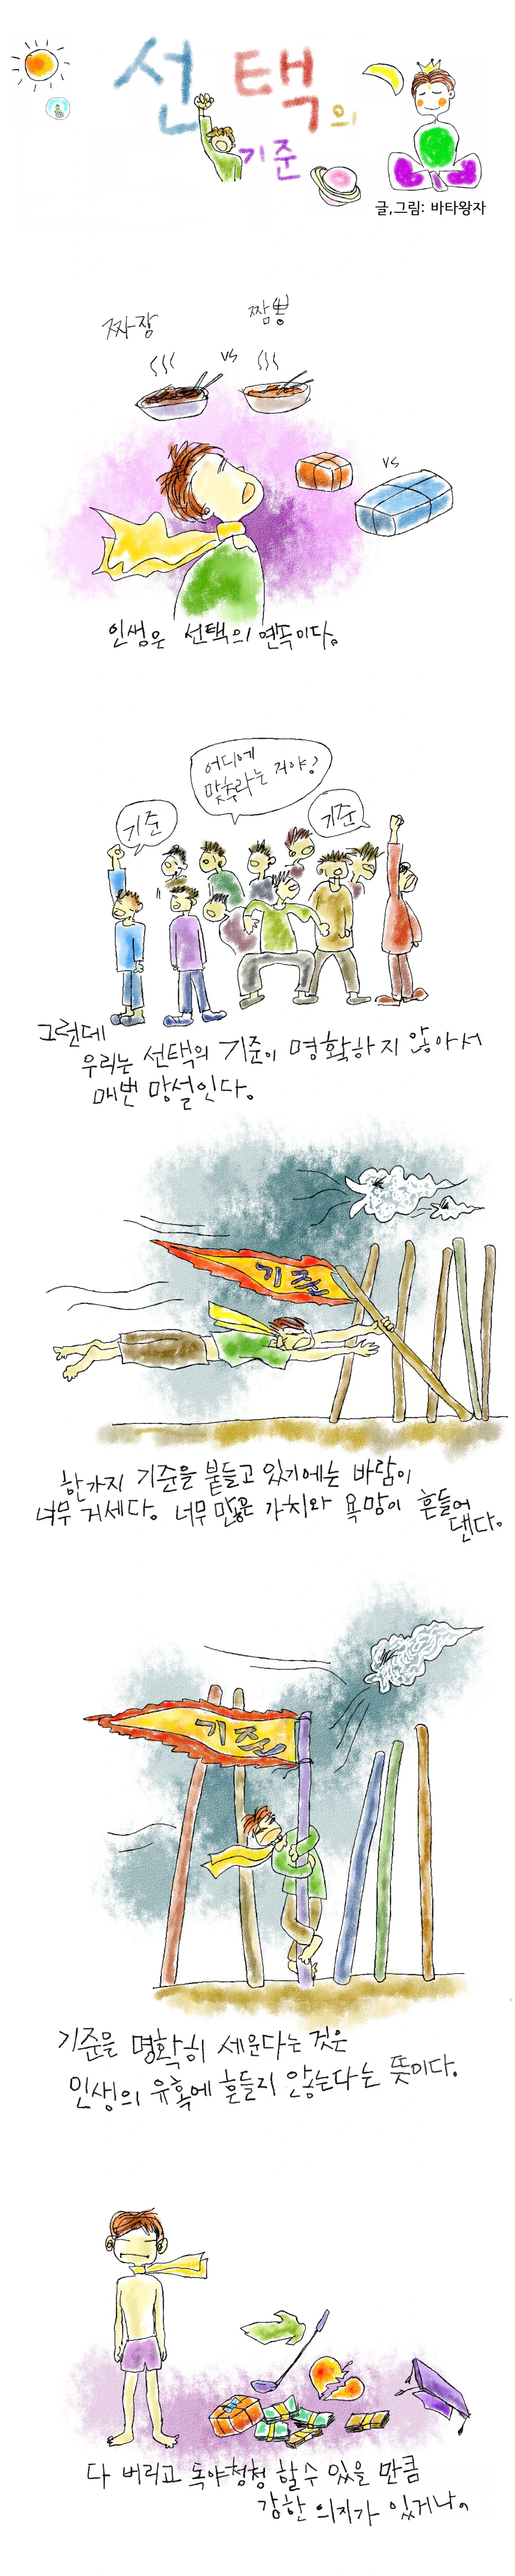 선택의
기준
글,그림: 바타왕자
짜장
vs
짬뽕
vs
인생은 선택의 연속이다.
어디에
맞추라는 거야?
기준
기준
그런데
우리는 선택의 기준이 명확하지 않아서
매번 망설인다.
기준
한가지 기준을 붙들고 있기에는 바람이
너무 거세다. 너무 많은 가치와 욕망이 흔들어
댄다.
기준
기준을 명확히 세운다는 것은
인생의 유혹에 흔들리지 않는다는 뜻이다.
다 버리고 독야청청 할 수 있을 만큼
강한 의지가 있거나.